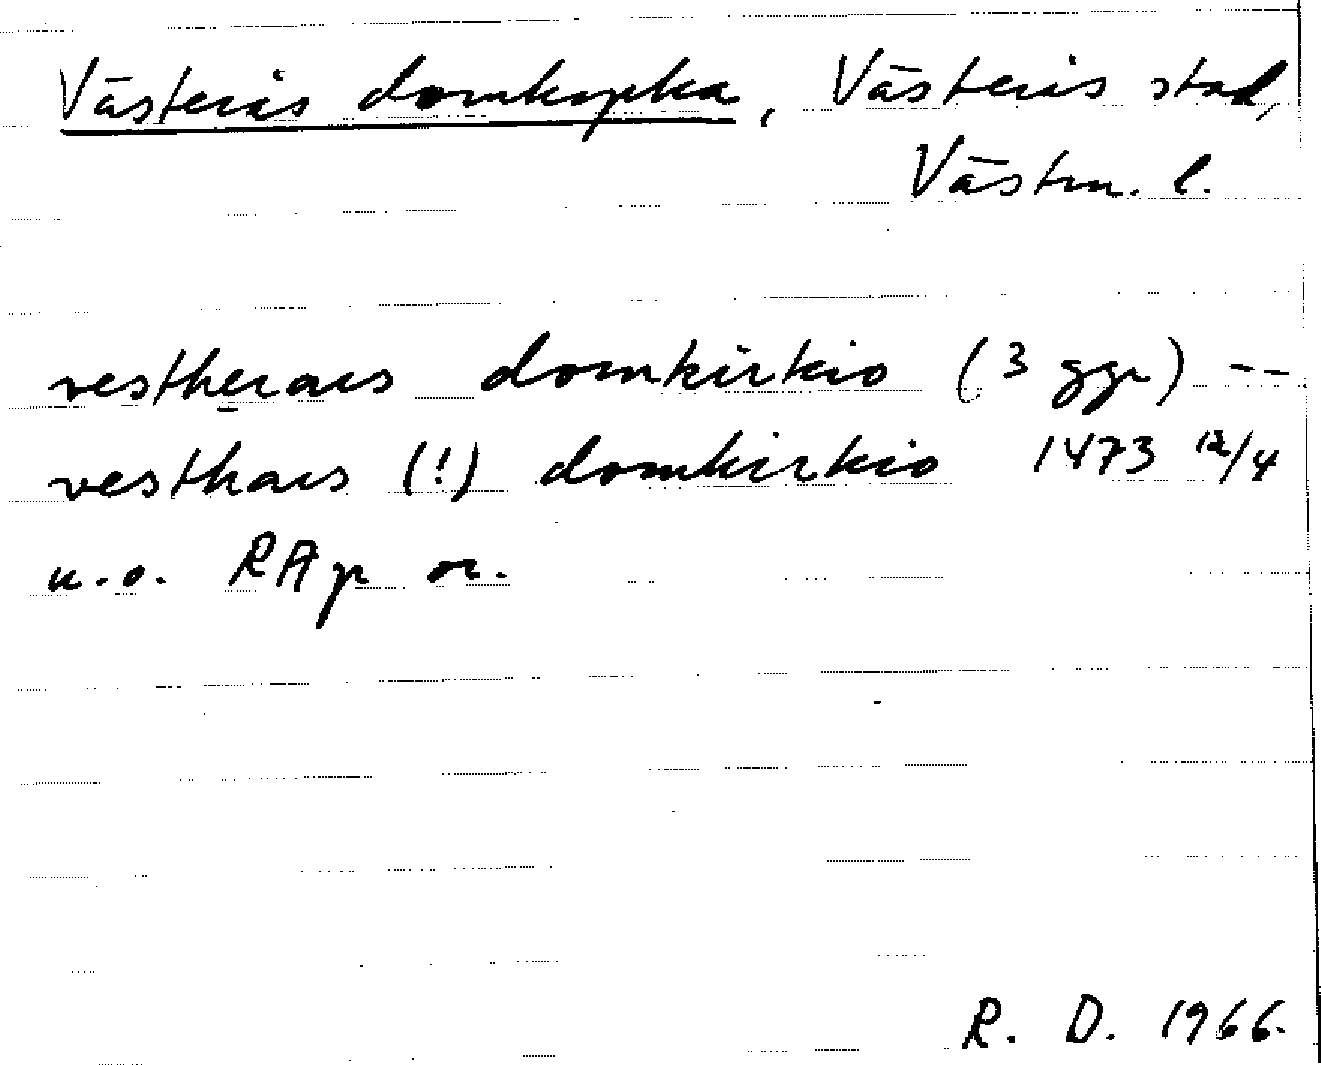 Västerås domkyrka, Västerås stad,
Västm. l.
vestheraes domkirkio (3 ggr) --
vesthaes (!) domkirkio 1473 12/4
u.o. RAp or.
R. D. 1966.